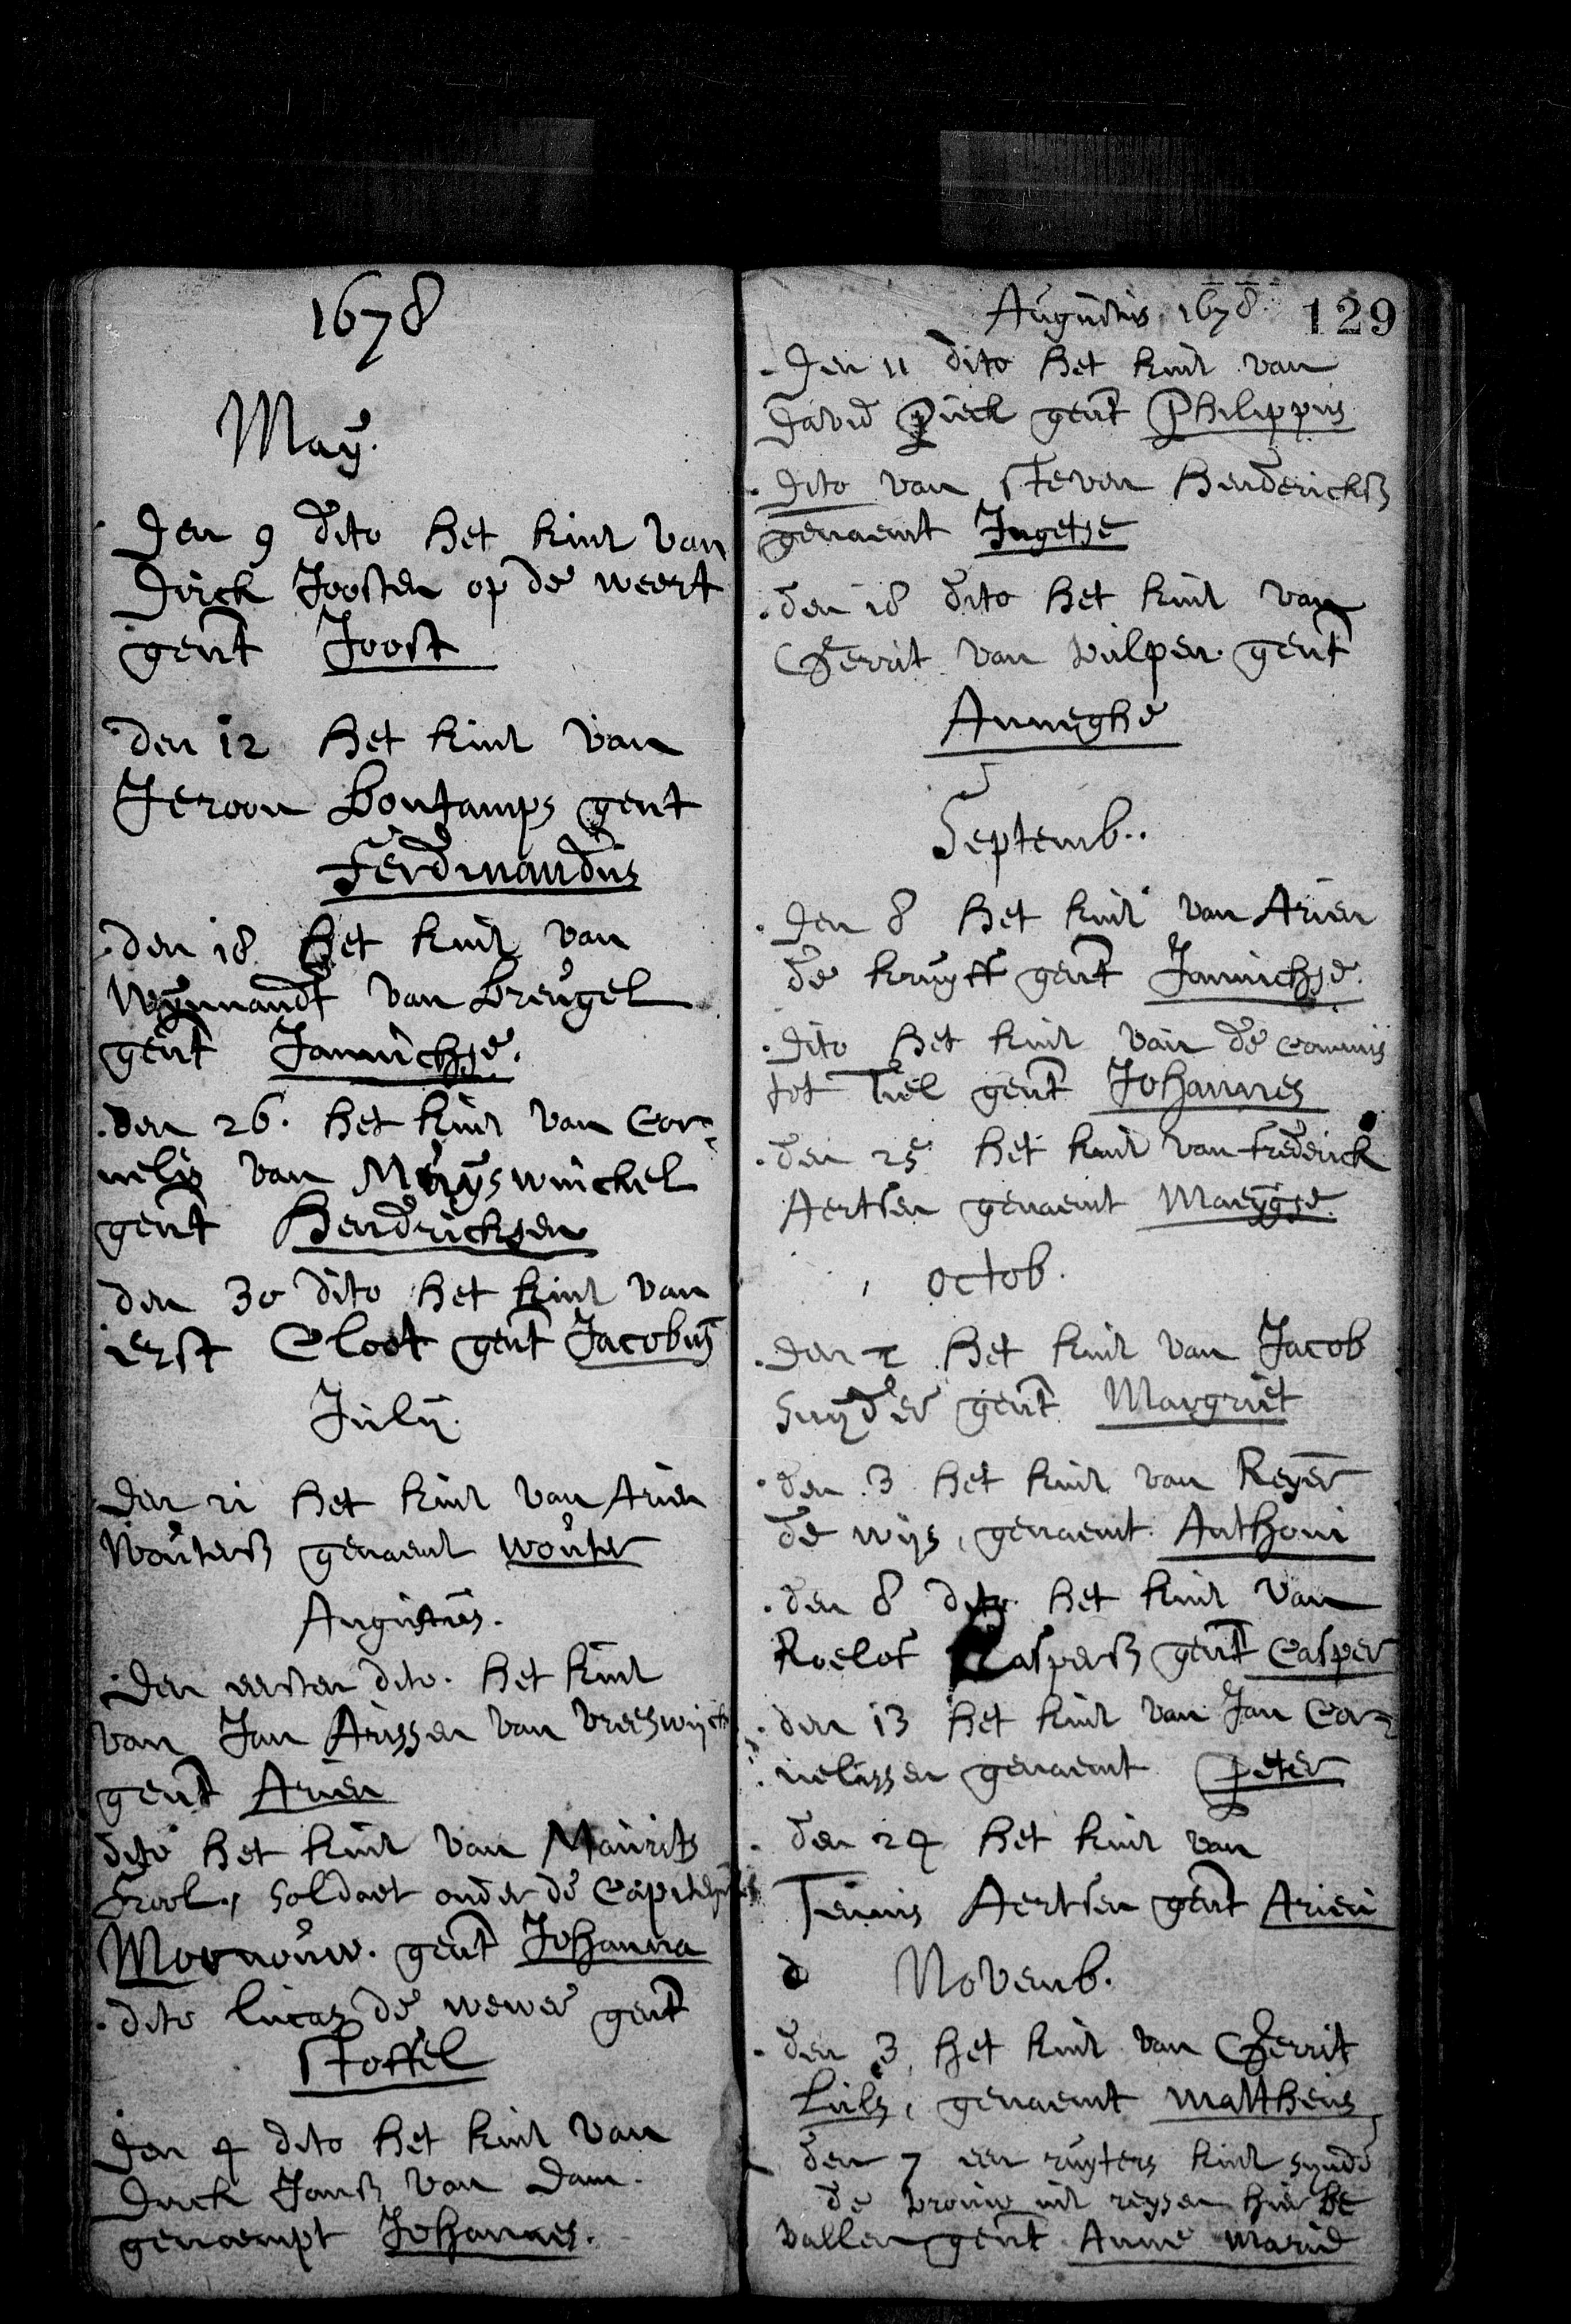 1678
May.
Den 9 dito het kint van
Dirck Joosten op de weert
gent Joost
den 12 het kint van
Jeroon Bontamps gent
Ferdinandus
den 18 het kint van
Wynnandt van Breugel
gent Jannichse.
den 26. het kint van Cor-
nelis van Muijswinckel
gent Hendricksen
den 30 dito het kint van
Ernst Cloot gent Jacobus
July
Den 21 het kint van Arien
Wouterß genaemt Wouter
Augustus.
Den eersten dito. het kint
van Jan Arissen van Vreeswijck
gent Arien
dito het kint van Maurits
soldaet onder de
gent Johanna
dito Lucas de wever gent
Stoffel
Den 4 dito het kint van
Dirck Janß van Dam.
genaempt Johannes.
Augustus 1678. 129
Den 11 dito het kint van
David Pieck gent Philippus
Dito van Steven Henderickß
genaemt Ingetse
den 18 dito het kint van
Gerrit van Wilpen gent
Anneghe
Septemb..
Den 8 het kint van Arien
de kruyff gent Jannichse.
Dito het kint van de Commis
tot Tiel gent Johannes
den 25 het kint van Frederick
Aertsen genaemt Maeygse.
octob.
Den 2 het kint van Jacob
Snyder gent Margriet
den 3 het kint van Reyer
de wijs, genaemt Anthoni
den 8 dito het kint van
Roelof Casperß gent Casper
den 13 het kint van Jan Cor-
nelissen genaemt Peter
den 24 het kint van
Teunis Aertsen gent Arien
d Novemb.
den 3 het kint van Gerrit
genaemt Mattheus
den 7 een ruyters kint synde
de vrouw int reysen hier be
vallen gent Anne Marie